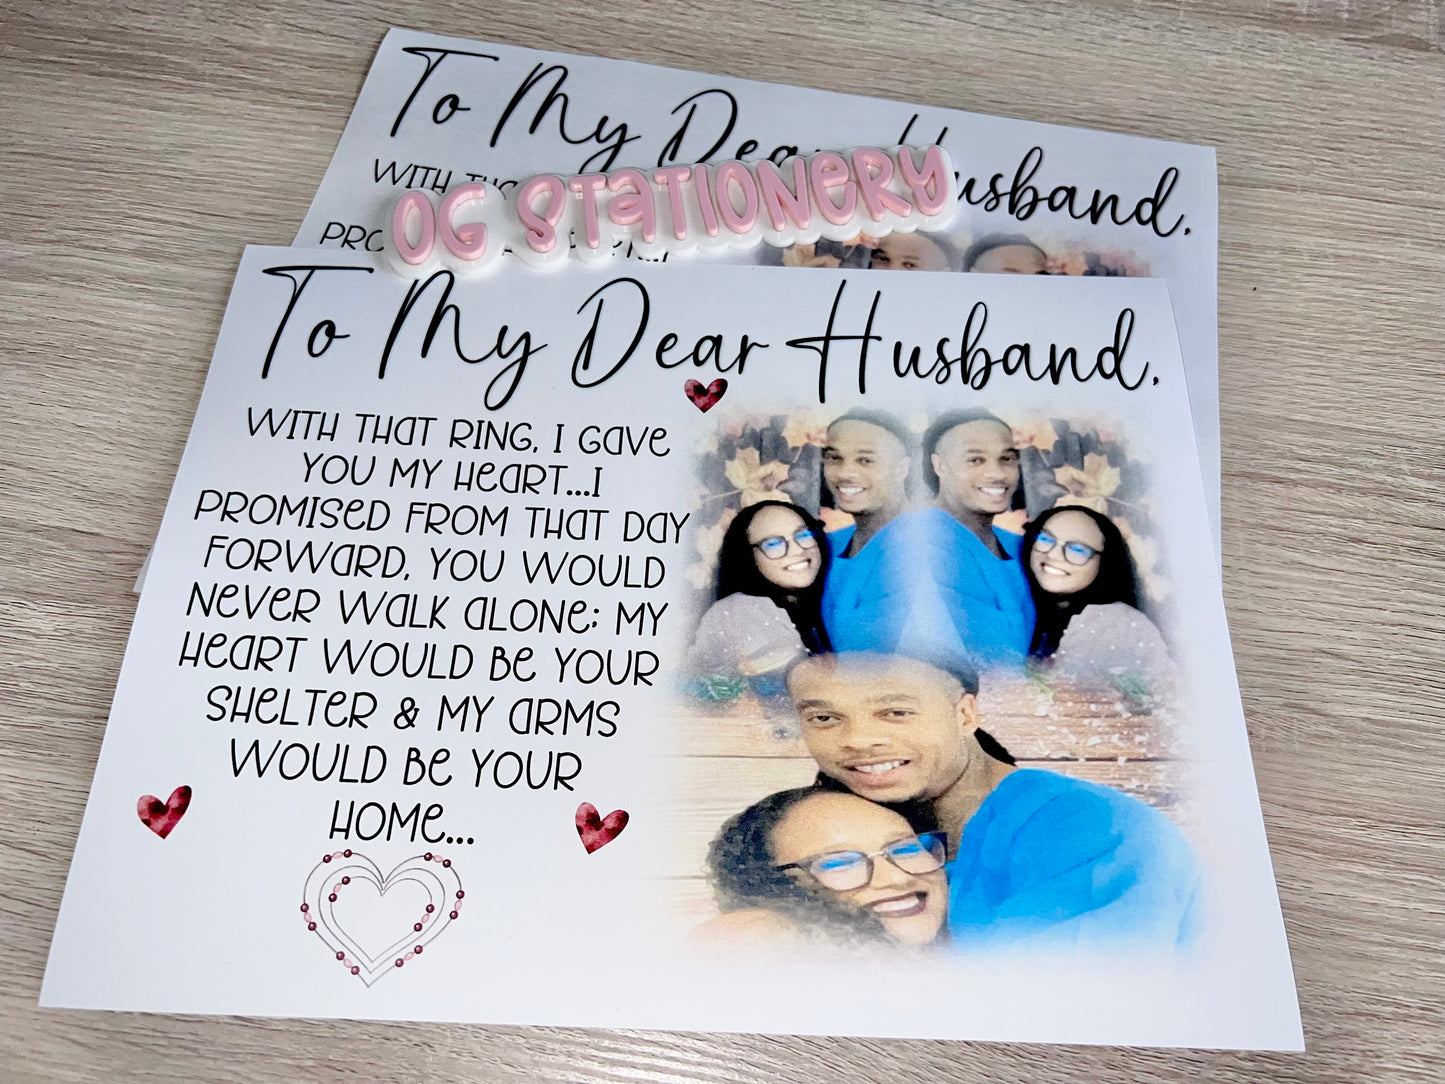 To My Dear Husband,
WITH THAT
PRO
OG STATIONERY
To My Dear Husband,
WITH THAT RING, I GAVE
YOU MY HEART...I
PROMISED FROM THAT DAY
FORWARD, YOU WOULD
NEVER WALK ALONE; MY
HEART WOULD BE YOUR
SHELTER & MY ARMS
WOULD BE YOUR
HOME...